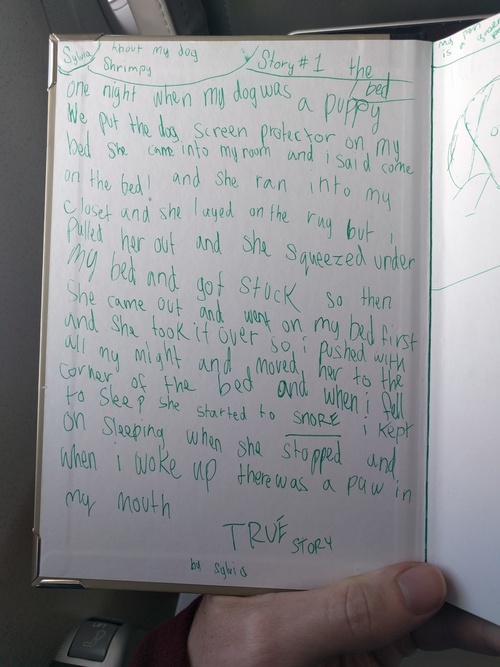 Sylvia About my dog Shrimpy Story #1 the bed
one night when my dog was a puppy
We put the dog screen protector on my
bed she came into my room and i said come
on the bed! and she ran into my
closet and she layed on the rug but i
pulled her out and she squeezed under
my bed and got stuck so then
she came out and went on my bed first
and she took it over so i pushed with
all my might and moved her to the
corner of the bed and when i fell
to sleep she started to SNORE i kept
on sleeping when she stopped and
when i woke up there was a paw in
my mouth
TRUE STORY
by Sylvia
my
is a